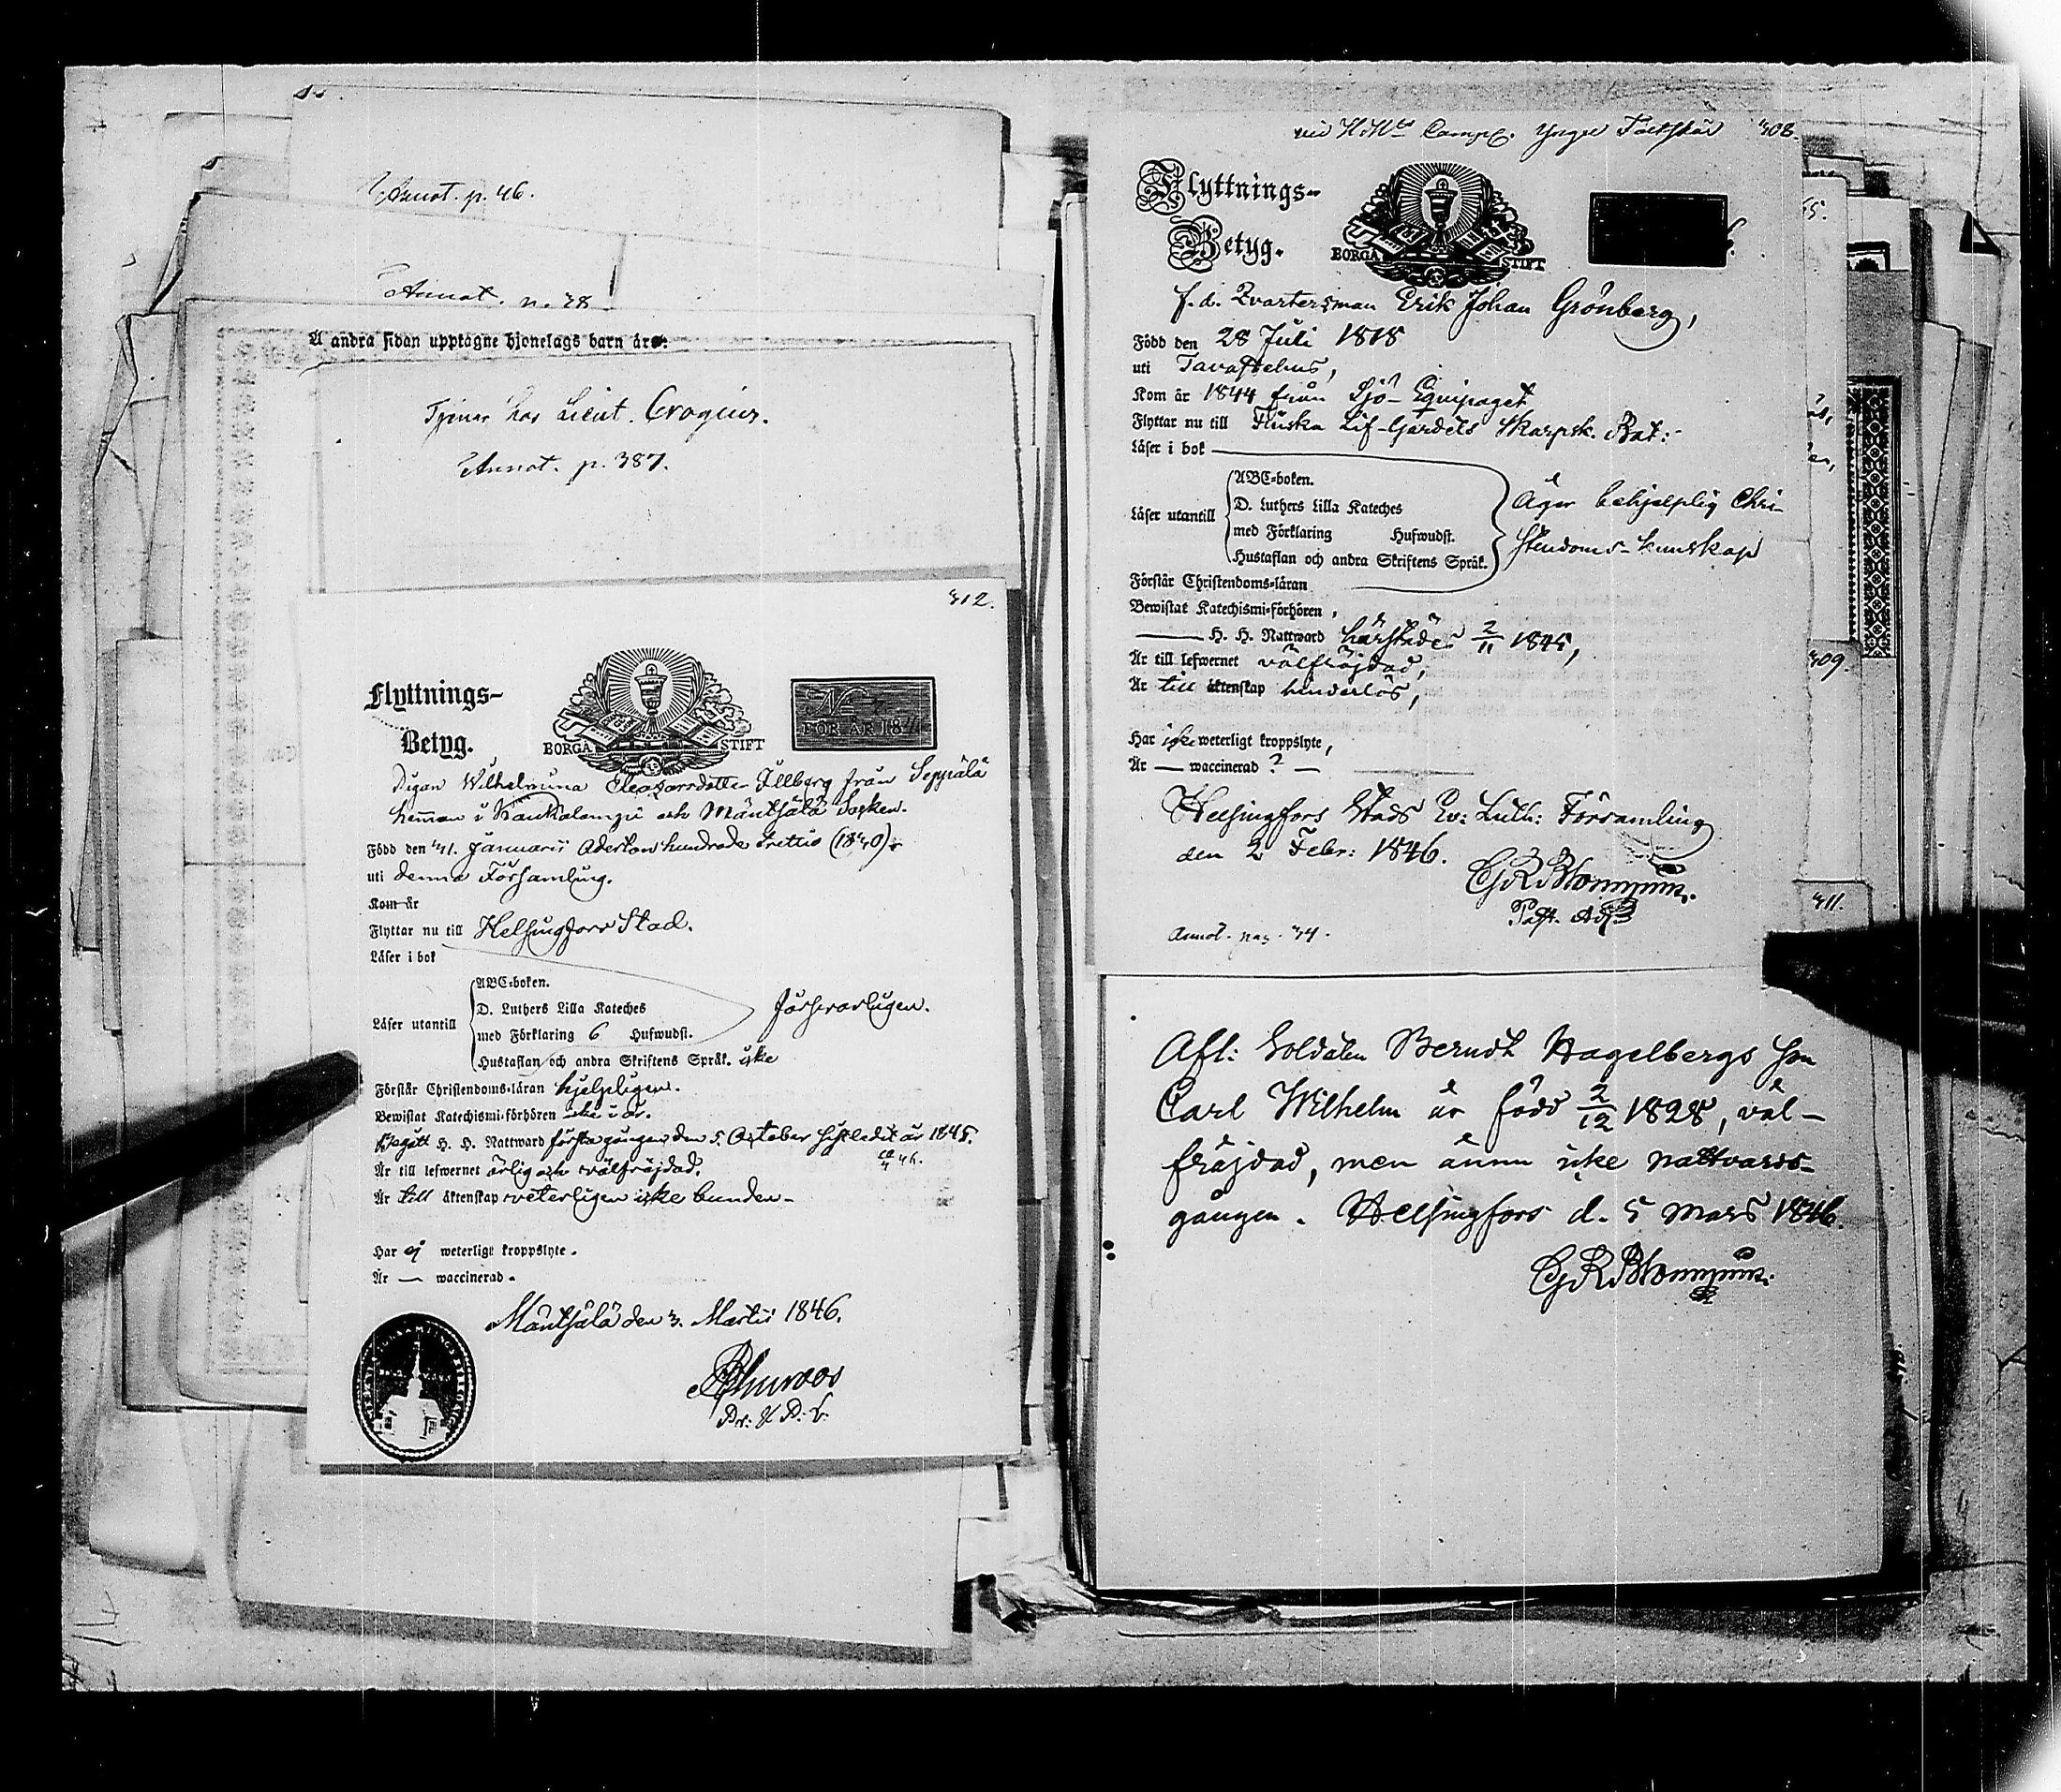 Annot. p. 46.
Annot. p. 38
Å andra sidan upptagne hjonelags barn äro:
Tjenar hos Lieut. Crogius.
Annot. p. 387.
312.
Flyttnings-
Betyg.
BORGÅ STIFT
N
FÖR ÅR 184
Pigan Wilhelmina Eleazarsdotter Illberg från Seppälä
hemman i Kaukalampi och Mäntsälä Socken.
Född den 31. Januarii Adertonhundrade trettio (1830)
uti denna Församling.
Kom år
Flyttar nu till Helsingfors Stad.
Läser i bok
ABC-boken.
Läser utantill D. Luthers Lilla Kateches försvarligen.
med Förklaring 6 Hufwudst.
Hustaflan och andra Skriftens Språk. icke
Förstår Christendoms-läran hjelpligen.
Bewistat Katechismi-förhören icke i år.
Begått H. H. Nattward första gången den 5. October sistledit år 1845.
Är till lefwernet ärlig och välfräjdad.
Är till äktenskap veterligen icke bunden -
Har ej weterligt kroppslyte.
Är — waccinerad.
Mäntsälä den 3. Martii 1846.
vid Comp. Yngre
308.
Flyttnings-
Betyg.
BORGÅ STIFT
f. d. Qvartersman Erik Johan Grönberg,
Född den 28 Juli 1818
uti Tavastehus,
Kom år 1844 från Sjö-Equipaget
Flyttar nu till Finska Lif-Gardets Skarpsk. Bat:
Läser i bok
ABC-boken.
Läser utantill D. Luthers Lilla Kateches Äger behjelplig Chri-
med Förklaring Hufwudst. stendoms-kunskap
Hustaflan och andra Skriftens Språk.
Förstår Christendoms-läran
Bewistat Katechismi-förhören,
— H. H. Nattward härstädes 2/11 1845,
Är till lefwernet välfräjdad,
Är till äktenskap hinderlös,
Har icke weterligt kroppslyte,
Är — waccinerad ? —
Helsingfors Stads Ev: Luth: Församling
den 2 Febr: 1846.
Past. Adj.
Annot. pag. 34.
Afl: Soldaten Berndt Hagelbergs son
Carl Wilhelm är född 2/12 1828, väl-
fräjdad, men ännu icke nattvards-
gången. Helsingfors d. 5 Mars 1846.
309.
311.